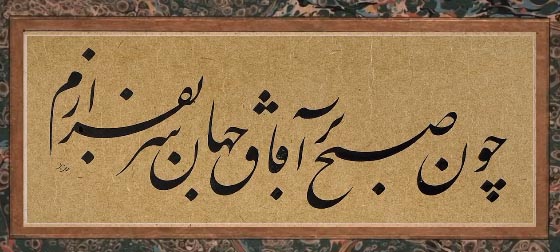 چون صبح بر آفاق جهان سر بفرازم